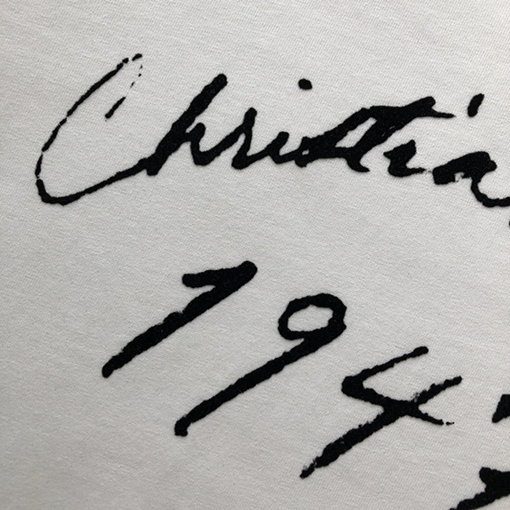 Christian
194